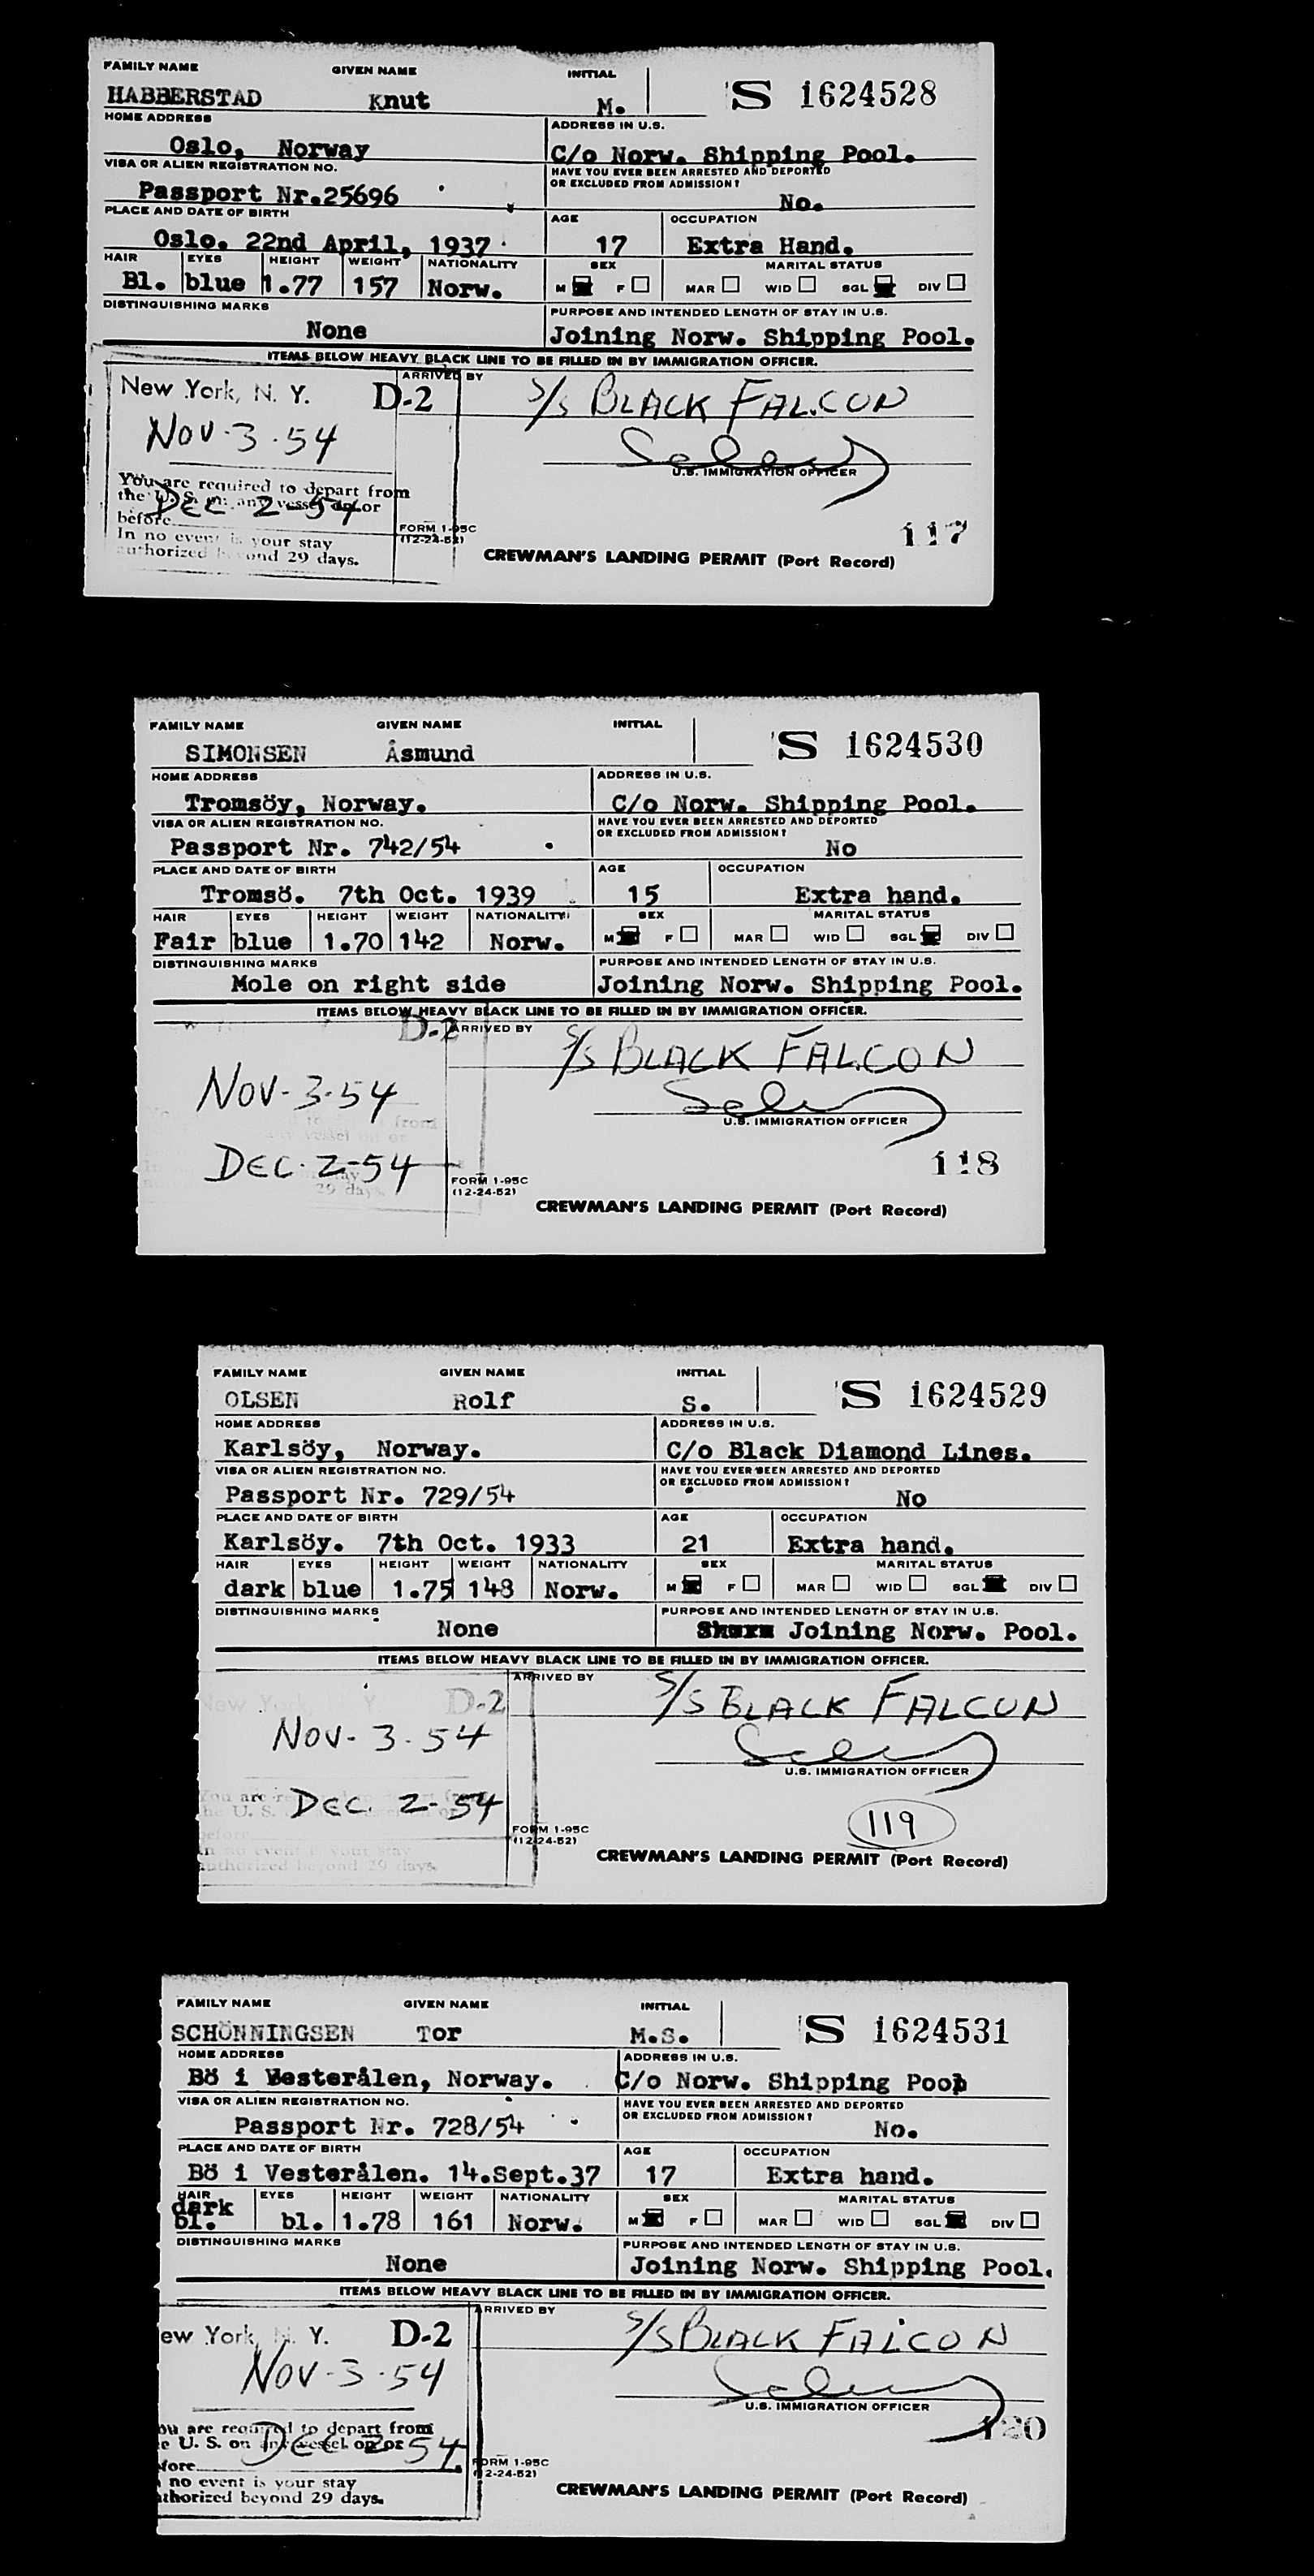 FAMILY NAME GIVEN NAME INITIAL
HABBERSTAD Knut M. S 1624528
HOME ADDRESS ADDRESS IN U.S.
Oslo, Norway C/o Norw. Shipping Pool.
VISA OR ALIEN REGISTRATION NO. HAVE YOU EVER BEEN ARRESTED AND DEPORTED OR EXCLUDED FROM ADMISSION?
Passport Nr.25696 No.
PLACE AND DATE OF BIRTH AGE OCCUPATION
Oslo. 22nd April, 1937 17 Extra Hand.
HAIR EYES HEIGHT WEIGHT NATIONALITY SEX MARITAL STATUS
Bl. blue 1.77 157 Norw. M F MAR WID SGL DIV
DISTINGUISHING MARKS PURPOSE AND INTENDED LENGTH OF STAY IN U.S.
None Joining Norw. Shipping Pool.
ITEMS BELOW HEAVY BLACK LINE TO BE FILLED IN BY IMMIGRATION OFFICER.
New York, N. Y. D-2 ARRIVED BY S/S BLACK FALCON
NOV-3-54
U.S. IMMIGRATION OFFICER
You are required to depart from
the U. S. on any vessel on or
DEC 2-54
before
In no event is your stay
authorized beyond 29 days.
FORM 1-95C
(12-24-52)
117
CREWMAN'S LANDING PERMIT (Port Record)
FAMILY NAME GIVEN NAME INITIAL
SIMONSEN Åsmund S 1624530
HOME ADDRESS ADDRESS IN U.S.
Tromsöy, Norway. C/o Norw. Shipping Pool.
VISA OR ALIEN REGISTRATION NO. HAVE YOU EVER BEEN ARRESTED AND DEPORTED OR EXCLUDED FROM ADMISSION?
Passport Nr. 742/54 No
PLACE AND DATE OF BIRTH AGE OCCUPATION
Tromsö. 7th Oct. 1939 15 Extra hand.
HAIR EYES HEIGHT WEIGHT NATIONALITY SEX MARITAL STATUS
Fair blue 1.70 142 Norw. M F MAR WID SGL DIV
DISTINGUISHING MARKS PURPOSE AND INTENDED LENGTH OF STAY IN U.S.
Mole on right side Joining Norw. Shipping Pool.
ITEMS BELOW HEAVY BLACK LINE TO BE FILLED IN BY IMMIGRATION OFFICER.
D-2 ARRIVED BY S/S BLACK FALCON
NOV-3-54
U.S. IMMIGRATION OFFICER
DEC. 2-54
29 days
FORM 1-95C
(12-24-52)
118
CREWMAN'S LANDING PERMIT (Port Record)
FAMILY NAME GIVEN NAME INITIAL
OLSEN Rolf S. S 1624529
HOME ADDRESS ADDRESS IN U.S.
Karlsöy, Norway. C/o Black Diamond Lines.
VISA OR ALIEN REGISTRATION NO. HAVE YOU EVER BEEN ARRESTED AND DEPORTED OR EXCLUDED FROM ADMISSION?
Passport Nr. 729/54 No
PLACE AND DATE OF BIRTH AGE OCCUPATION
Karlsöy. 7th Oct. 1933 21 Extra hand.
HAIR EYES HEIGHT WEIGHT NATIONALITY SEX MARITAL STATUS
dark blue 1.75 148 Norw. M F MAR WID SGL DIV
DISTINGUISHING MARKS PURPOSE AND INTENDED LENGTH OF STAY IN U.S.
None Joining Norw. Pool.
ITEMS BELOW HEAVY BLACK LINE TO BE FILLED IN BY IMMIGRATION OFFICER.
New Y. D-2 ARRIVED BY S/S BLACK FALCON
NOV-3-54
U.S. IMMIGRATION OFFICER
DEC. 2-54
authorized beyond 29 days.
FORM 1-95C
(12-24-52)
119
CREWMAN'S LANDING PERMIT (Port Record)
FAMILY NAME GIVEN NAME INITIAL
SCHÖNNINGSEN Tor M.S. S 1624531
HOME ADDRESS ADDRESS IN U.S.
Bö i Vesterålen, Norway. C/o Norw. Shipping Pool
VISA OR ALIEN REGISTRATION NO. HAVE YOU EVER BEEN ARRESTED AND DEPORTED OR EXCLUDED FROM ADMISSION?
Passport Nr. 728/54 No.
PLACE AND DATE OF BIRTH AGE OCCUPATION
Bö i Vesterålen. 14.Sept.37 17 Extra hand.
HAIR EYES HEIGHT WEIGHT NATIONALITY SEX MARITAL STATUS
dark bl. bl. 1.78 161 Norw. M F MAR WID SGL DIV
DISTINGUISHING MARKS PURPOSE AND INTENDED LENGTH OF STAY IN U.S.
None Joining Norw. Shipping Pool.
ITEMS BELOW HEAVY BLACK LINE TO BE FILLED IN BY IMMIGRATION OFFICER.
ew York, N. Y. D-2 ARRIVED BY S/S BLACK FALCON
NOV-3-54
U.S. IMMIGRATION OFFICER
ou are required to depart from
e U. S. on any vessel on or
DEC 2 54
fore
no event is your stay
thorized beyond 29 days.
FORM 1-95C
(12-24-52)
120
CREWMAN'S LANDING PERMIT (Port Record)